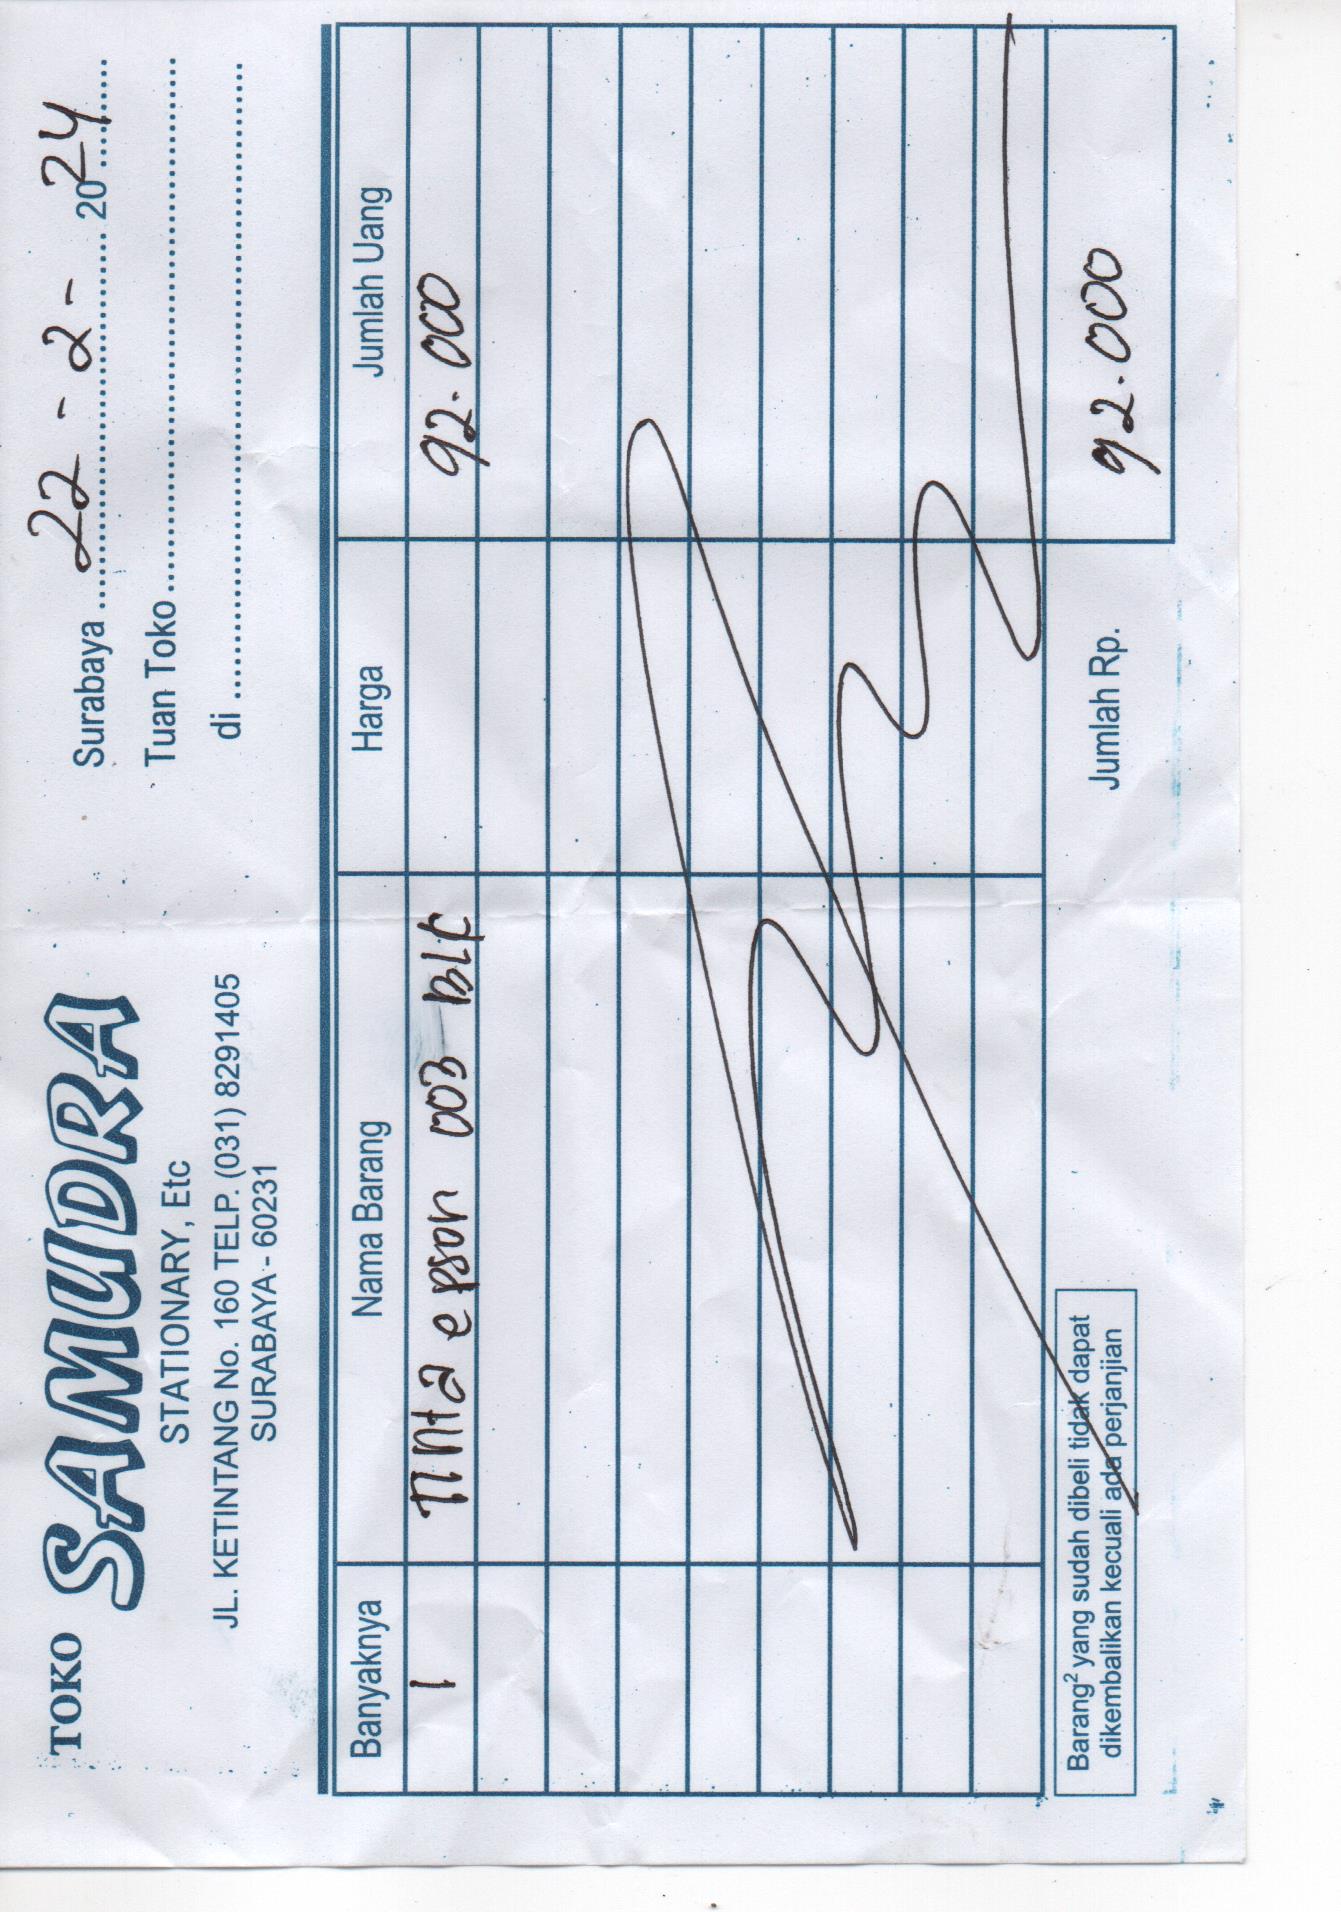 TOKO SAMUDRA
STATIONARY, Etc
JL. KETINTANG No. 160 TELP. (031) 8291405
SURABAYA - 60231
Surabaya 22 - 2 - 2024
Tuan Toko
di
Banyaknya Nama Barang Harga Jumlah Uang
1 Tinta epson 003 BLK 92.000
Jumlah Rp. 92.000
Barang² yang sudah dibeli tidak dapat
dikembalikan kecuali ada perjanjian